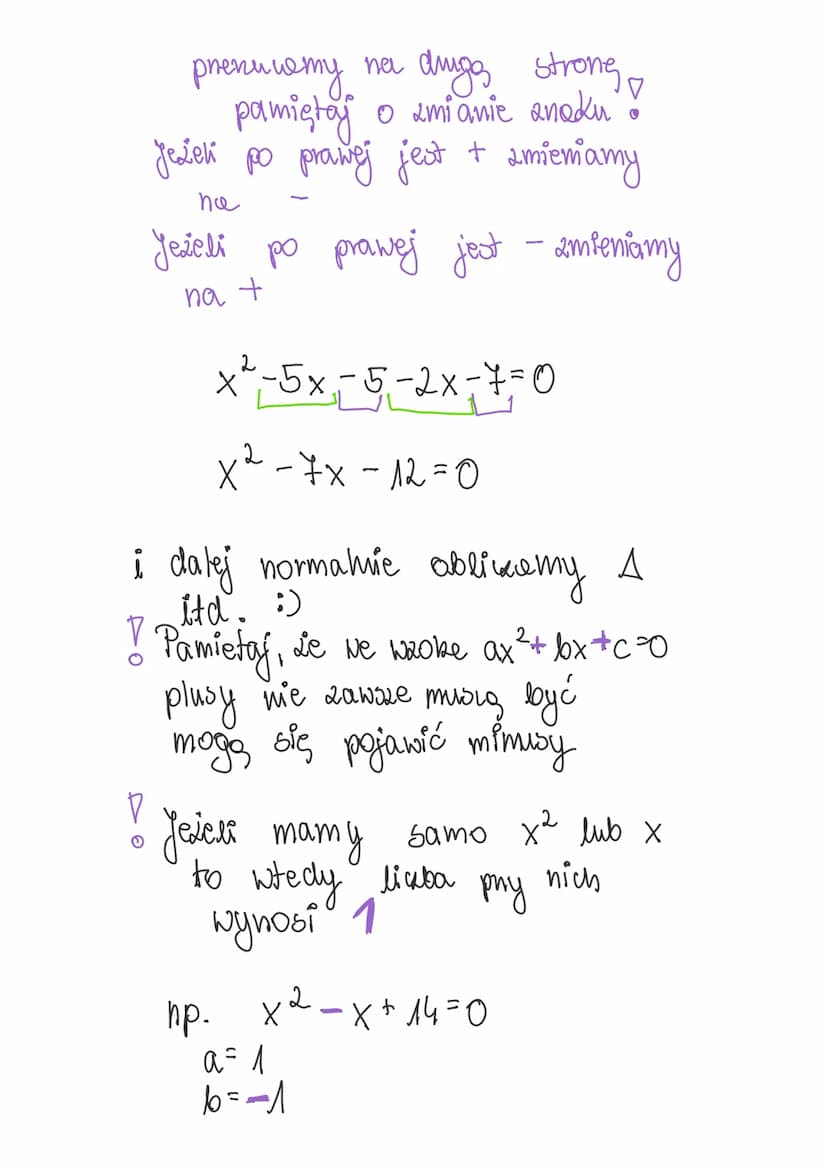 przenosimy na drugą stronę,
pamiętaj o zmianie znaku!
Jeżeli po prawej jest + zmieniamy
na -
Jeżeli po prawej jest - zmieniamy
na +
x²-5x-5-2x-7=0
x²-7x-12=0
i dalej normalnie obliczamy Δ
itd. :)
! Pamiętaj, że we wzorze ax²+bx+c=0
plusy nie zawsze muszą być
mogą się pojawić minusy
! Jeżeli mamy samo x² lub x
to wtedy liczba przy nich
wynosi 1
np. x²-x+14=0
a=1
b=-1